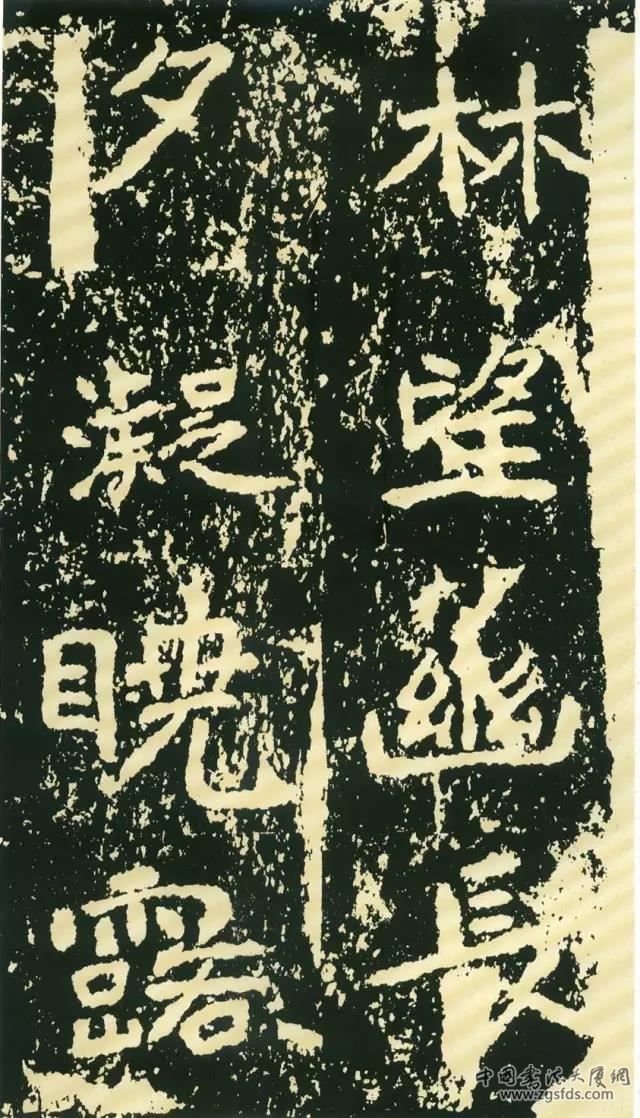 林望幽長
夕凝曉露
中国书法大厦網
www.zgsfds.com